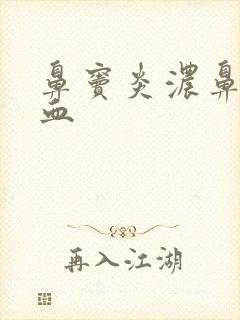 鼻窦炎浓鼻
血
再入江湖